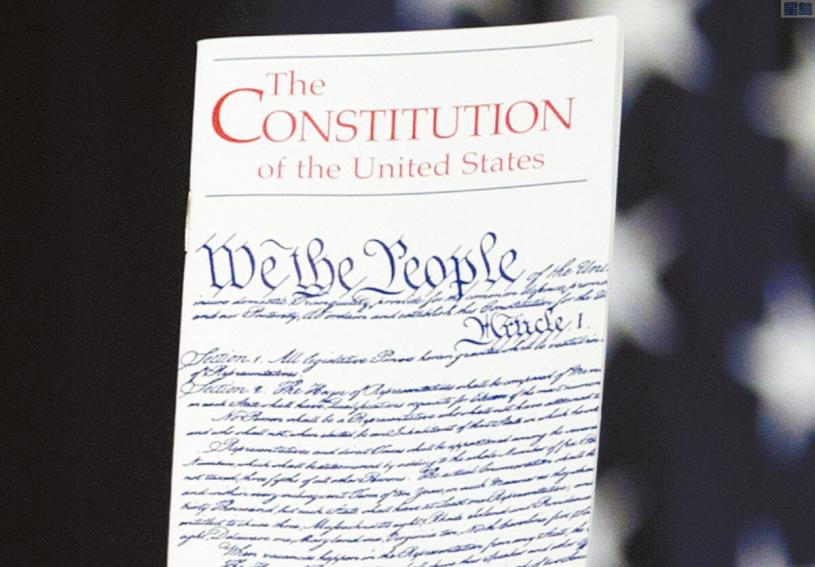 星島
The
CONSTITUTION
of the United States
We the People of the
insure domestic Tranquility, provide for the common defence,
and our Posterity, do ordain and establish this Constitution for the
Article 1.
Section 1. All legislative Powers herein granted shall be
of Representatives.
Section 2. The House of Representatives shall be composed of
in each State shall have Qualifications requisite for
No Person shall be a Representative who shall not have attained
and who shall not, when elected, be an Inhabitant of that State in which
Representatives and direct Taxes shall be apportioned among the
Numbers, which shall be determined by adding to the whole Number of free
not taxed, three fifths of all other Persons. The actual Enumeration shall
and within every subsequent Term of ten Years, in such Manner as they
thirty Thousand, but each State shall have at Least one Representative;
entitled to chuse three, Massachusetts eight, Rhode Island and Providence
eight, Delaware one, Maryland six, Virginia ten, North Carolina five,
When vacancies happen in the Representation from any State, the